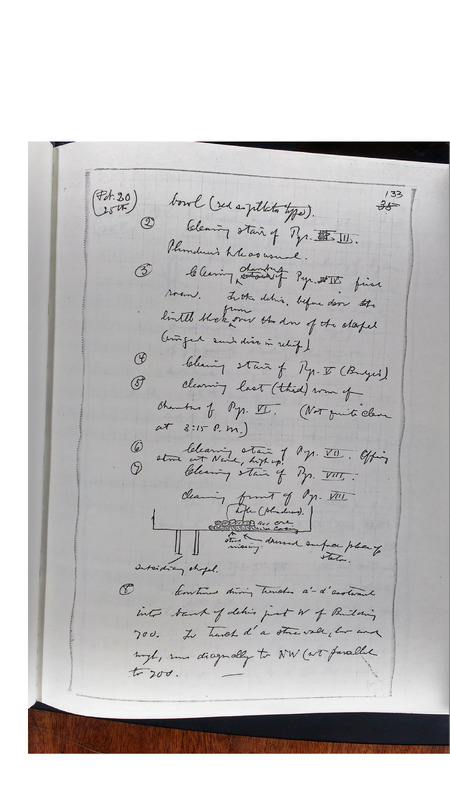 133
35
(Feb. 20
25th)
bowl (red as plates type).
② Clearing stair of Pyr. III.
Plunderer's hole as usual.
③ Clearing chamber of Pyr. IV first
room. In the debris, before door the
lintel block from over the door of the chapel
(winged sun's disc in relief)
④ Clearing stair of Pyr. V (Budge's)
⑤ clearing last (third) room of
chamber of Pyr. VI. (Not quite clear
at 3:15 P.M.)
⑥ Clearing stair of Pyr. VII. Offering
stone at N. side, high up.
⑦ Clearing stair of Pyr. VIII.
clearing front of Pyr. VIII
hole (plunderers).
stone missing
dressed surface place of
stela.
subsidiary chapel.
8 Continued driving trenches a'-d' eastward
into bank of debris just W of Building
700. In trench d' a stone wall, low and
rough, runs diagonally to NW (not parallel
to 700.